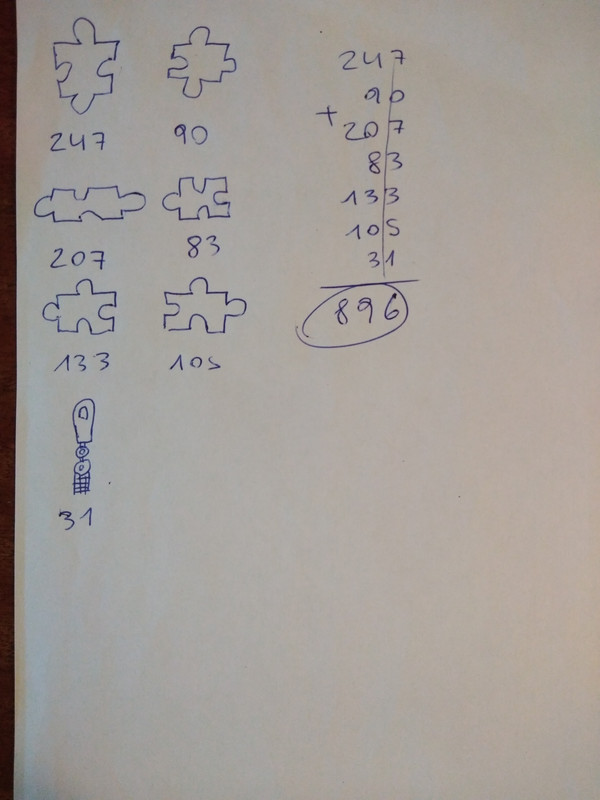 247 90
207 83
133 105
31
247
90
+ 207
83
133
105
31
896